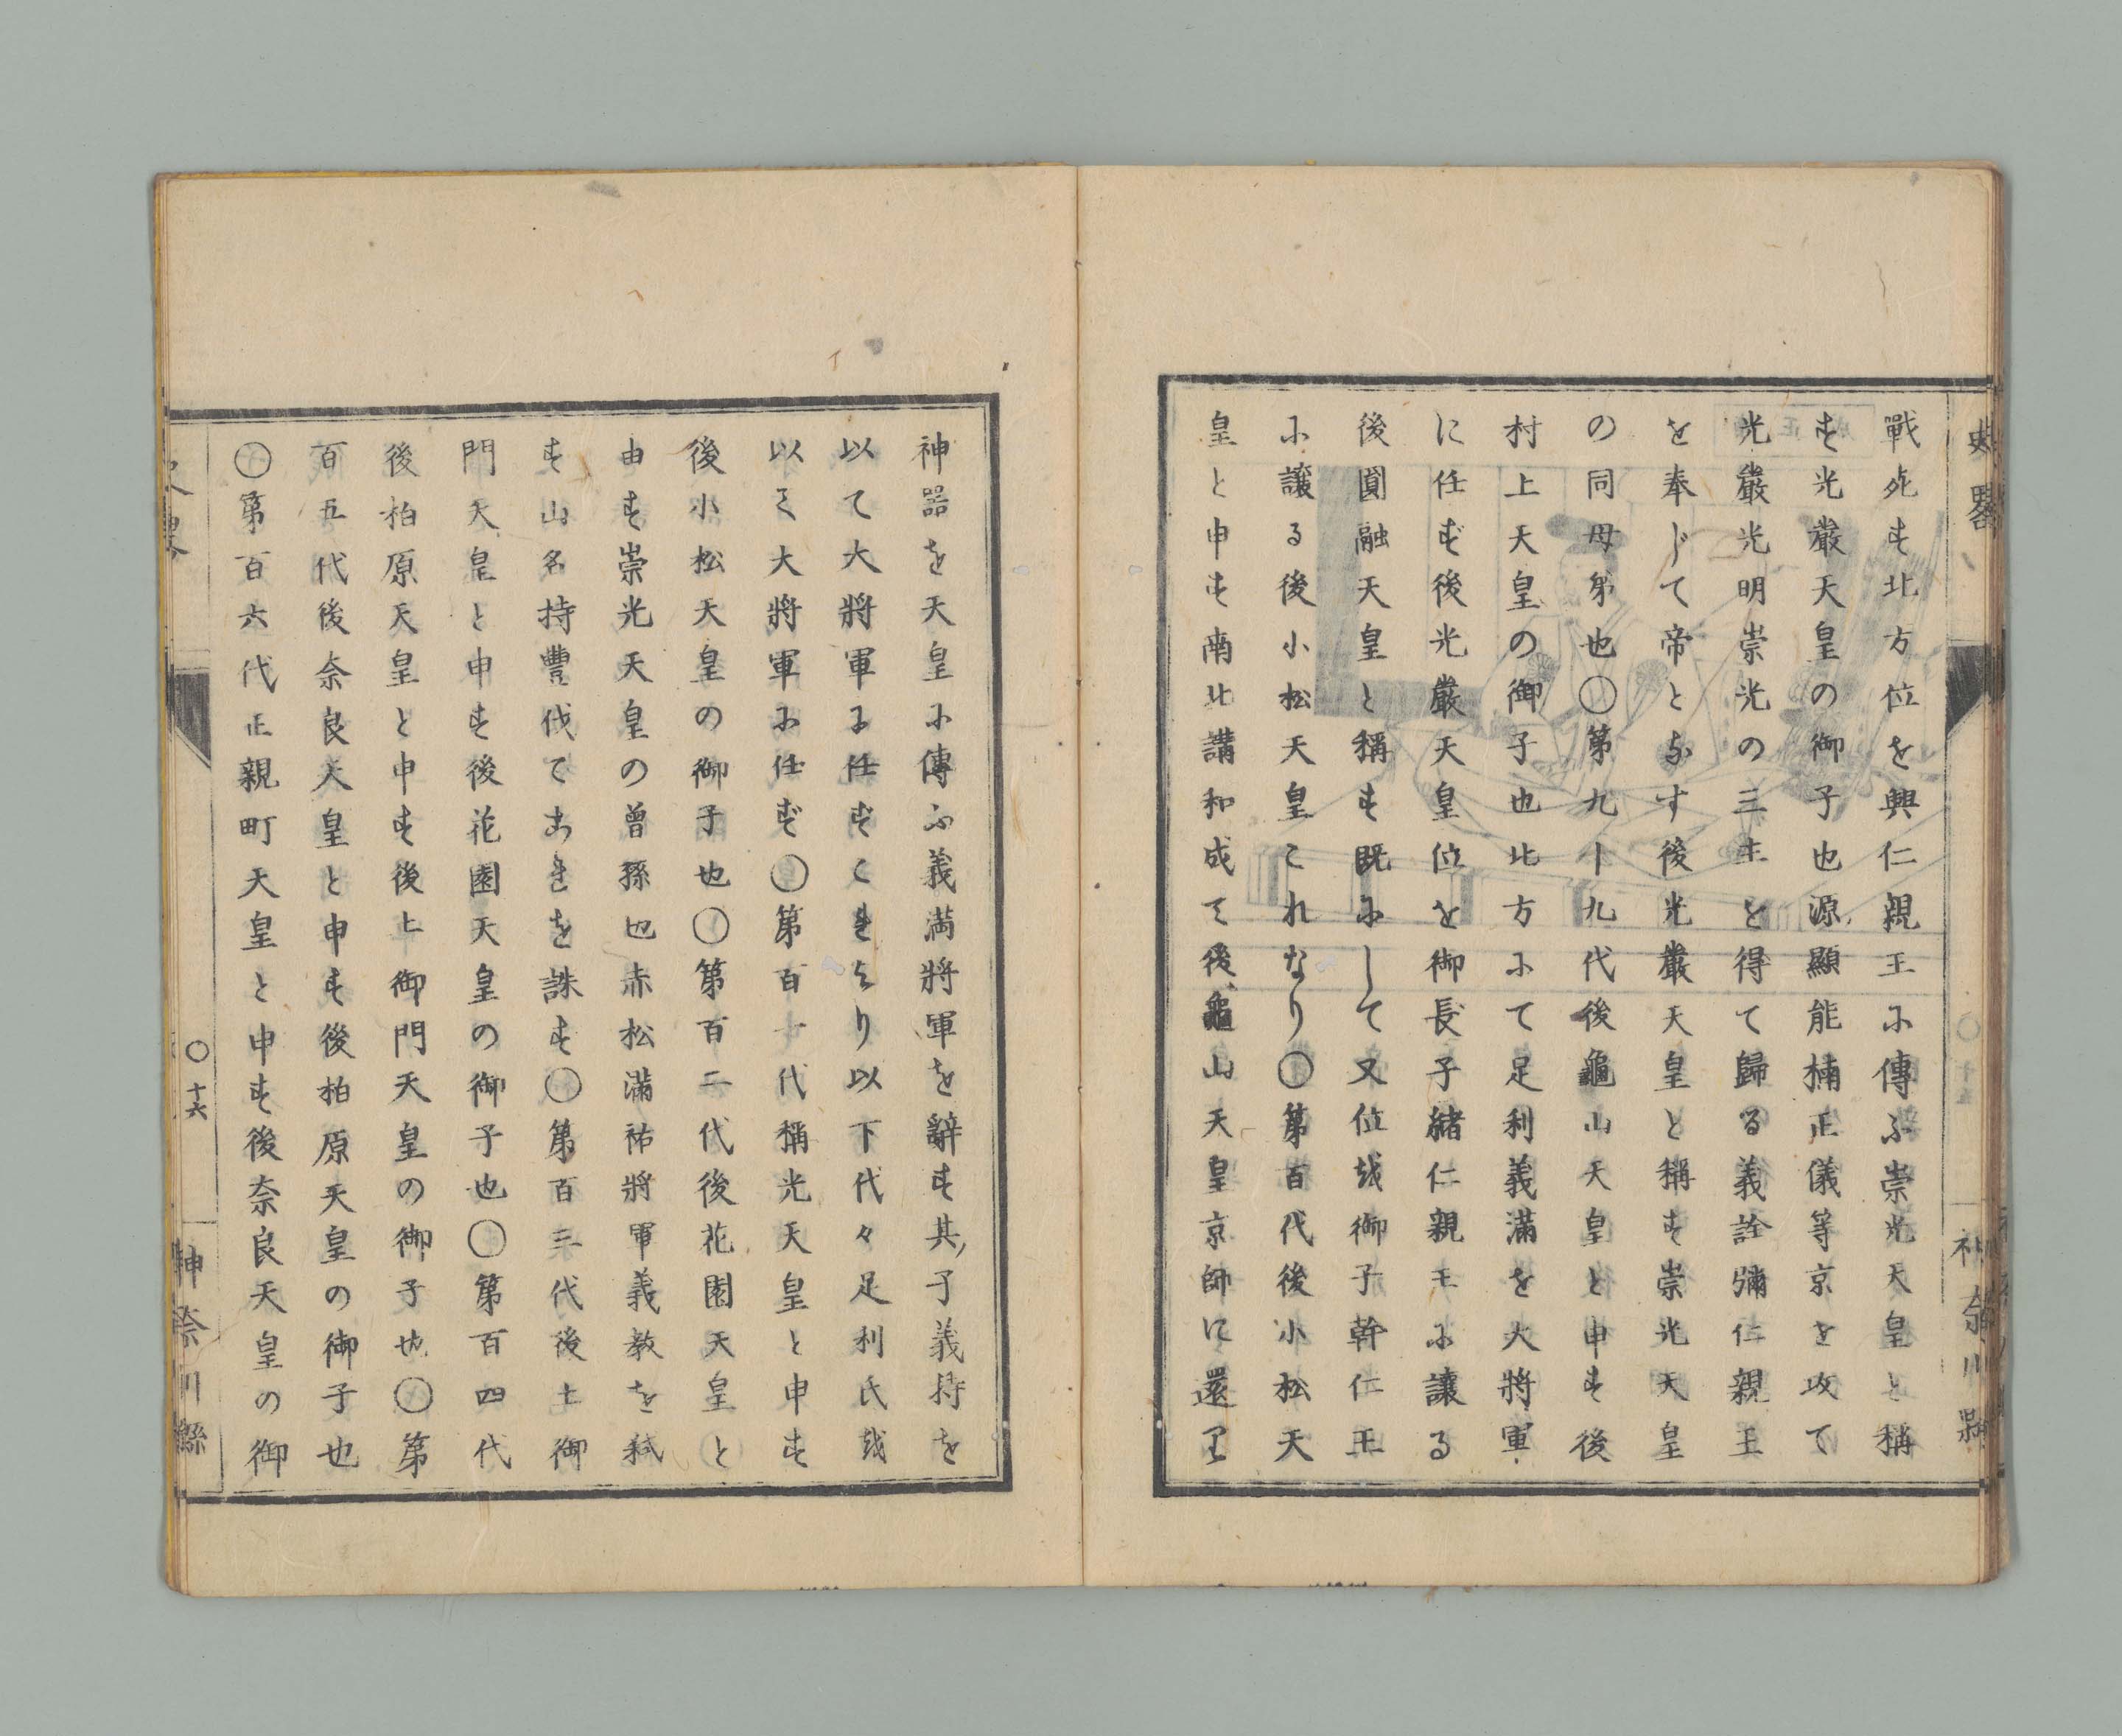 戰死す北方位を興仁親王に傳ふ崇光天皇と稱
す光嚴天皇の御子也源顯能楠正儀等京を攻て
光嚴光明崇光の三主を得て歸る義詮彌仁親王
を奉じて帝となす後光嚴天皇と稱す崇光天皇
の同母弟也〇第九十九代後龜山天皇と申す後
村上天皇の御子也北方にて足利義滿を大將軍
に任ず後光嚴天皇位を御長子緒仁親王に讓る
後圓融天皇と稱す既にして又位を御子幹仁王
に讓る後小松天皇これなり〇第百代後小松天
皇と申す南北講和成て後龜山天皇京師に還り
神器を天皇に傳ふ義満將軍を辭す其子義持を
以て大將軍に任ずこれより以下代々足利氏を
以て大將軍に任ず〇第百一代稱光天皇と申す
後小松天皇の御子也〇第百二代後花園天皇と
申す崇光天皇の曾孫也赤松滿祐將軍義教を弑
す山名持豐伐てこれを誅す〇第百三代後土御
門天皇と申す後花園天皇の御子也〇第百四代
後柏原天皇と申す後土御門天皇の御子也〇第
百五代後奈良天皇と申す後柏原天皇の御子也
〇第百六代正親町天皇と申す後奈良天皇の御
史畧
〇十六
神奈川縣